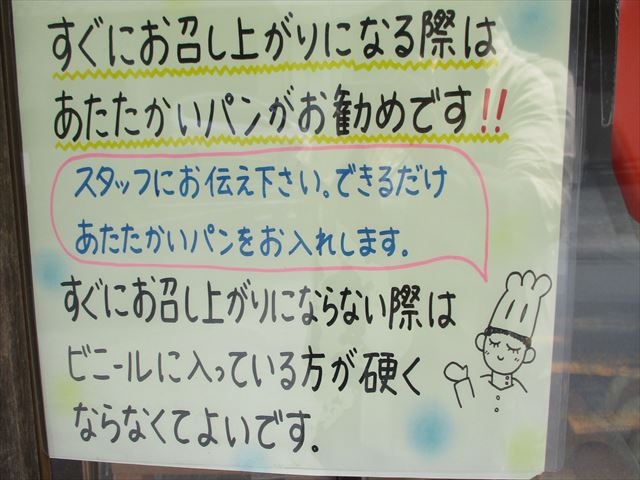 すぐにお召し上がりになる際は
あたたかいパンがお勧めです!!
スタッフにお伝え下さい。できるだけ
あたたかいパンをお入れします。
すぐにお召し上がりにならない際は
ビニールに入っている方が硬く
ならなくてよいです。